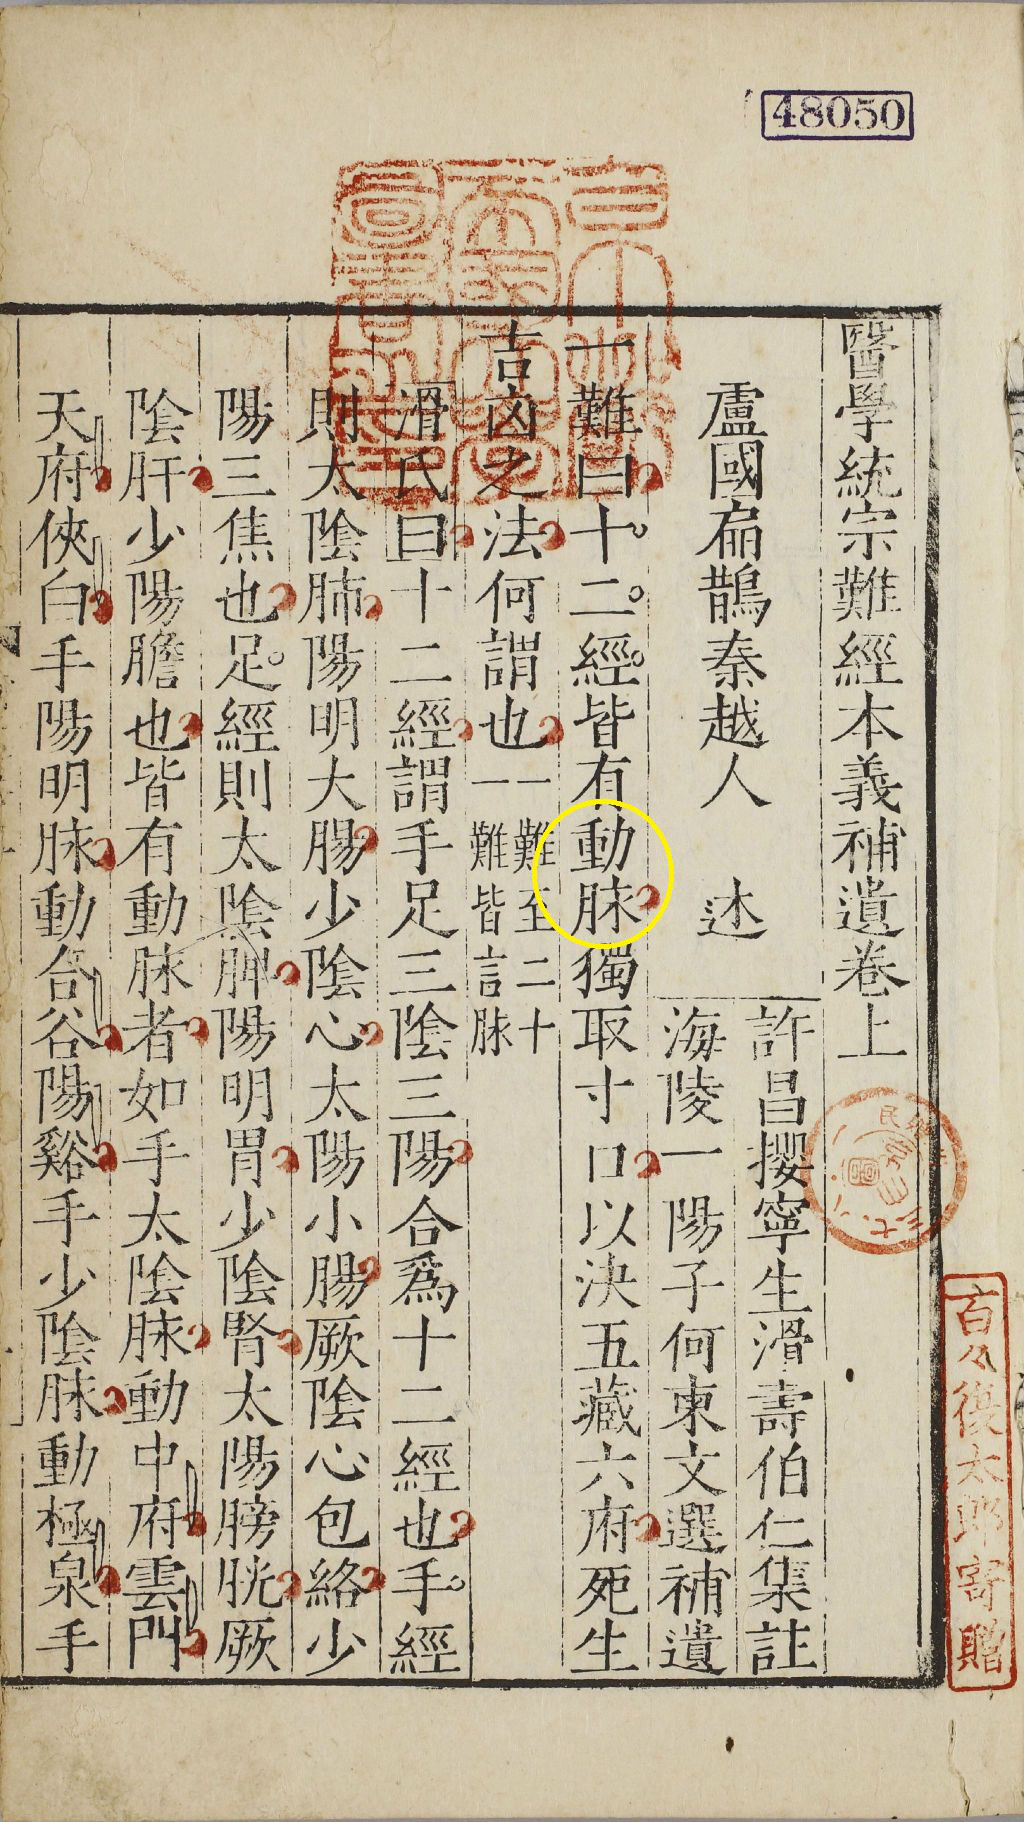 48050
醫學統宗難經本義補遺卷上
盧國扁鵲秦越人 述
許昌攖寧生滑壽伯仁集註
海陵一陽子何柬文選補遺
一難曰十二經皆有動脉獨取寸口以決五藏六府死生
吉凶之法何謂也一難至二十
一難皆言脉
滑氏曰十二經謂手足三陰三陽合爲十二經也手經
則太陰肺陽明大腸少陰心太陽小腸厥陰心包絡少
陽三焦也足經則太陰脾陽明胃少陰腎太陽膀胱厥
陰肝少陽膽也皆有動脉者如手太陰脉動中府雲門
天府俠白手陽明脉動合谷陽谿手少陰脉動極泉手
百々復太郎寄贈